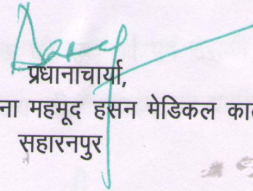 प्रधानाचार्या,
ना महमूद हसन मेडिकल का
सहारनपुर